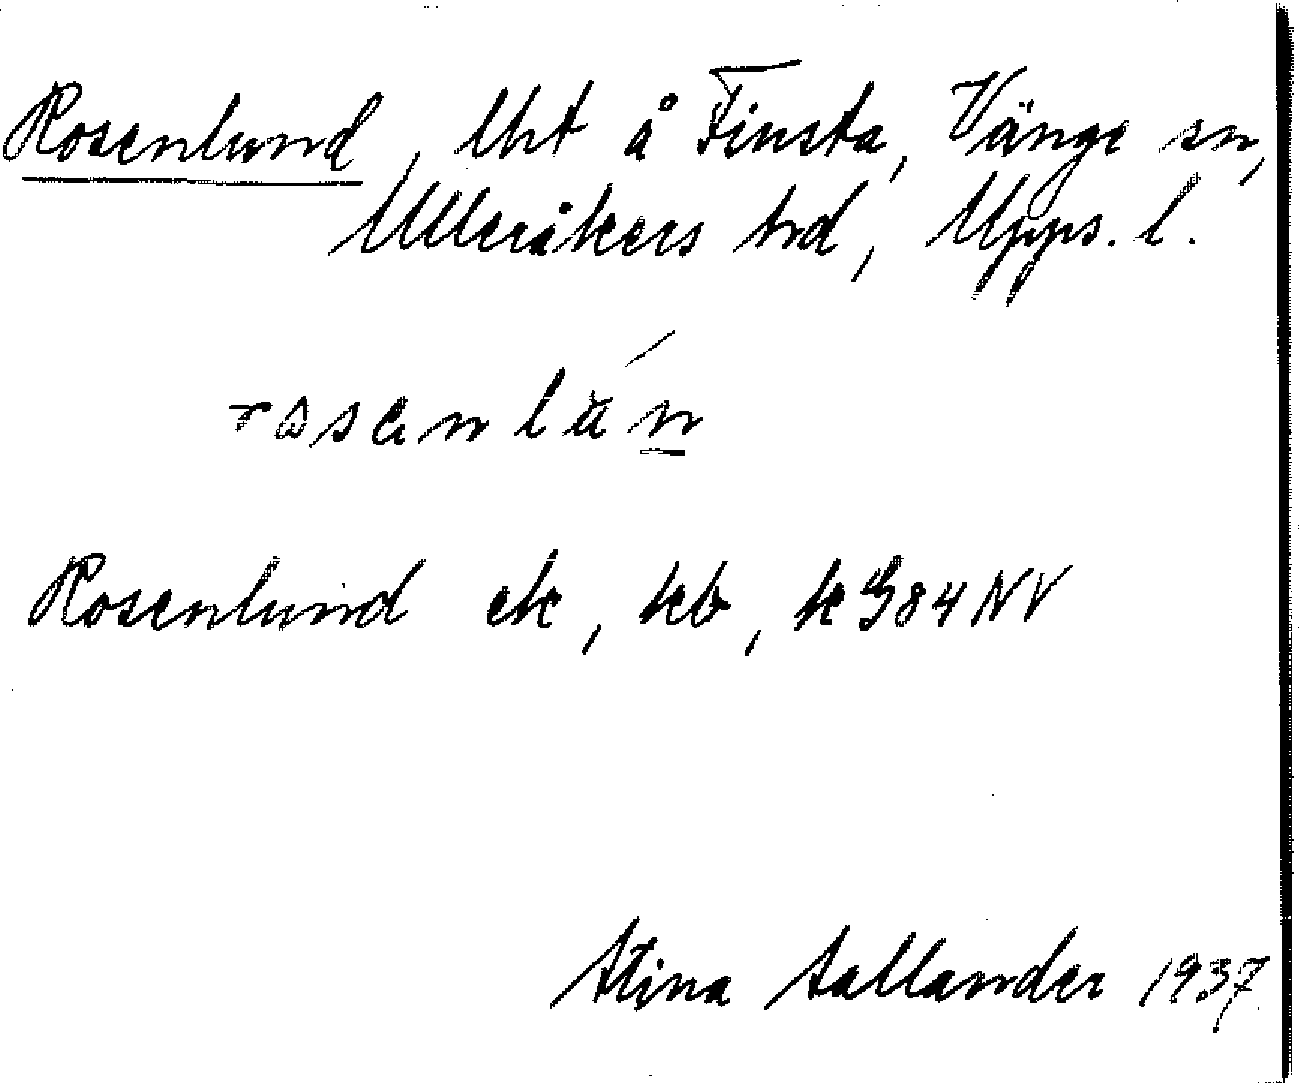 Rosenlund, lht å Finsta, Vänge sn,
Ulleråkers hd, Upps. l.
rosenlún
Rosenlund ek, kb, k G84NV
Stina Sallander 1937